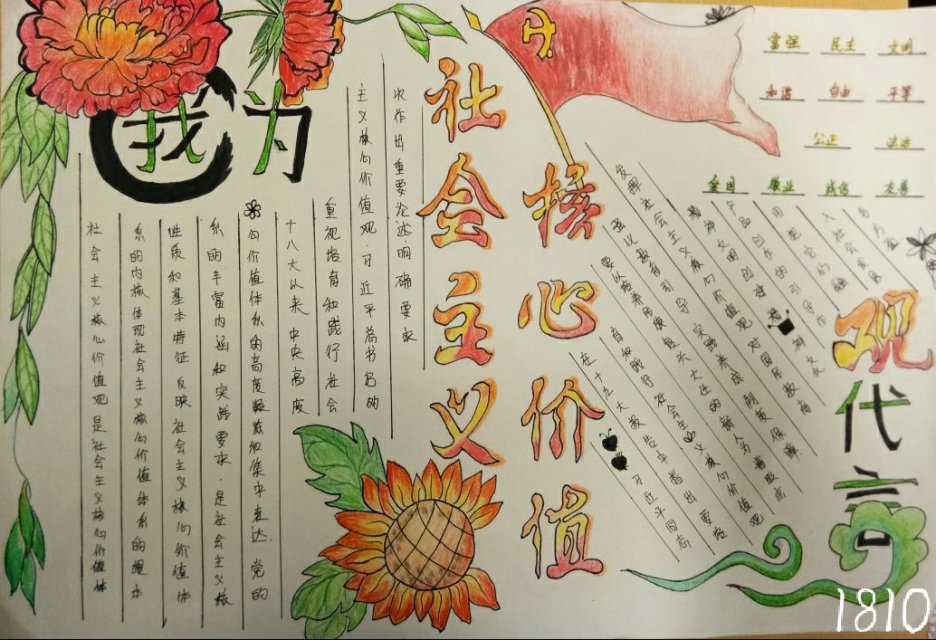 我为
社会主义
核心价值
观
代言
富强 民主 文明
和谐 自由 平等
公正 法治
爱国 敬业 诚信 友善
社会主义核心价值观是社会主义核心价值体
系的内核体现社会主义核心价值体系的根本
性质和基本特征反映社会主义核心价值体
系的丰富内涵和实践要求.是社会主义核
心价值体系的高度凝练和集中表达.党的
十八大以来中央高度
重视培育和践行社会
主义核心价值观习近平总书记的
次作出重要论述.明确要求
习近平同志
在十九大报告中指出要培
育和践行社会主义核心价值观
要以培养
大任的
新人为着眼点
强化教育引导实践养成制度保障
发挥社会主义核心价值观对国民教育
精神文明创建精神文化
产品创作
的引导作
用把它们融
入社会发展
1810